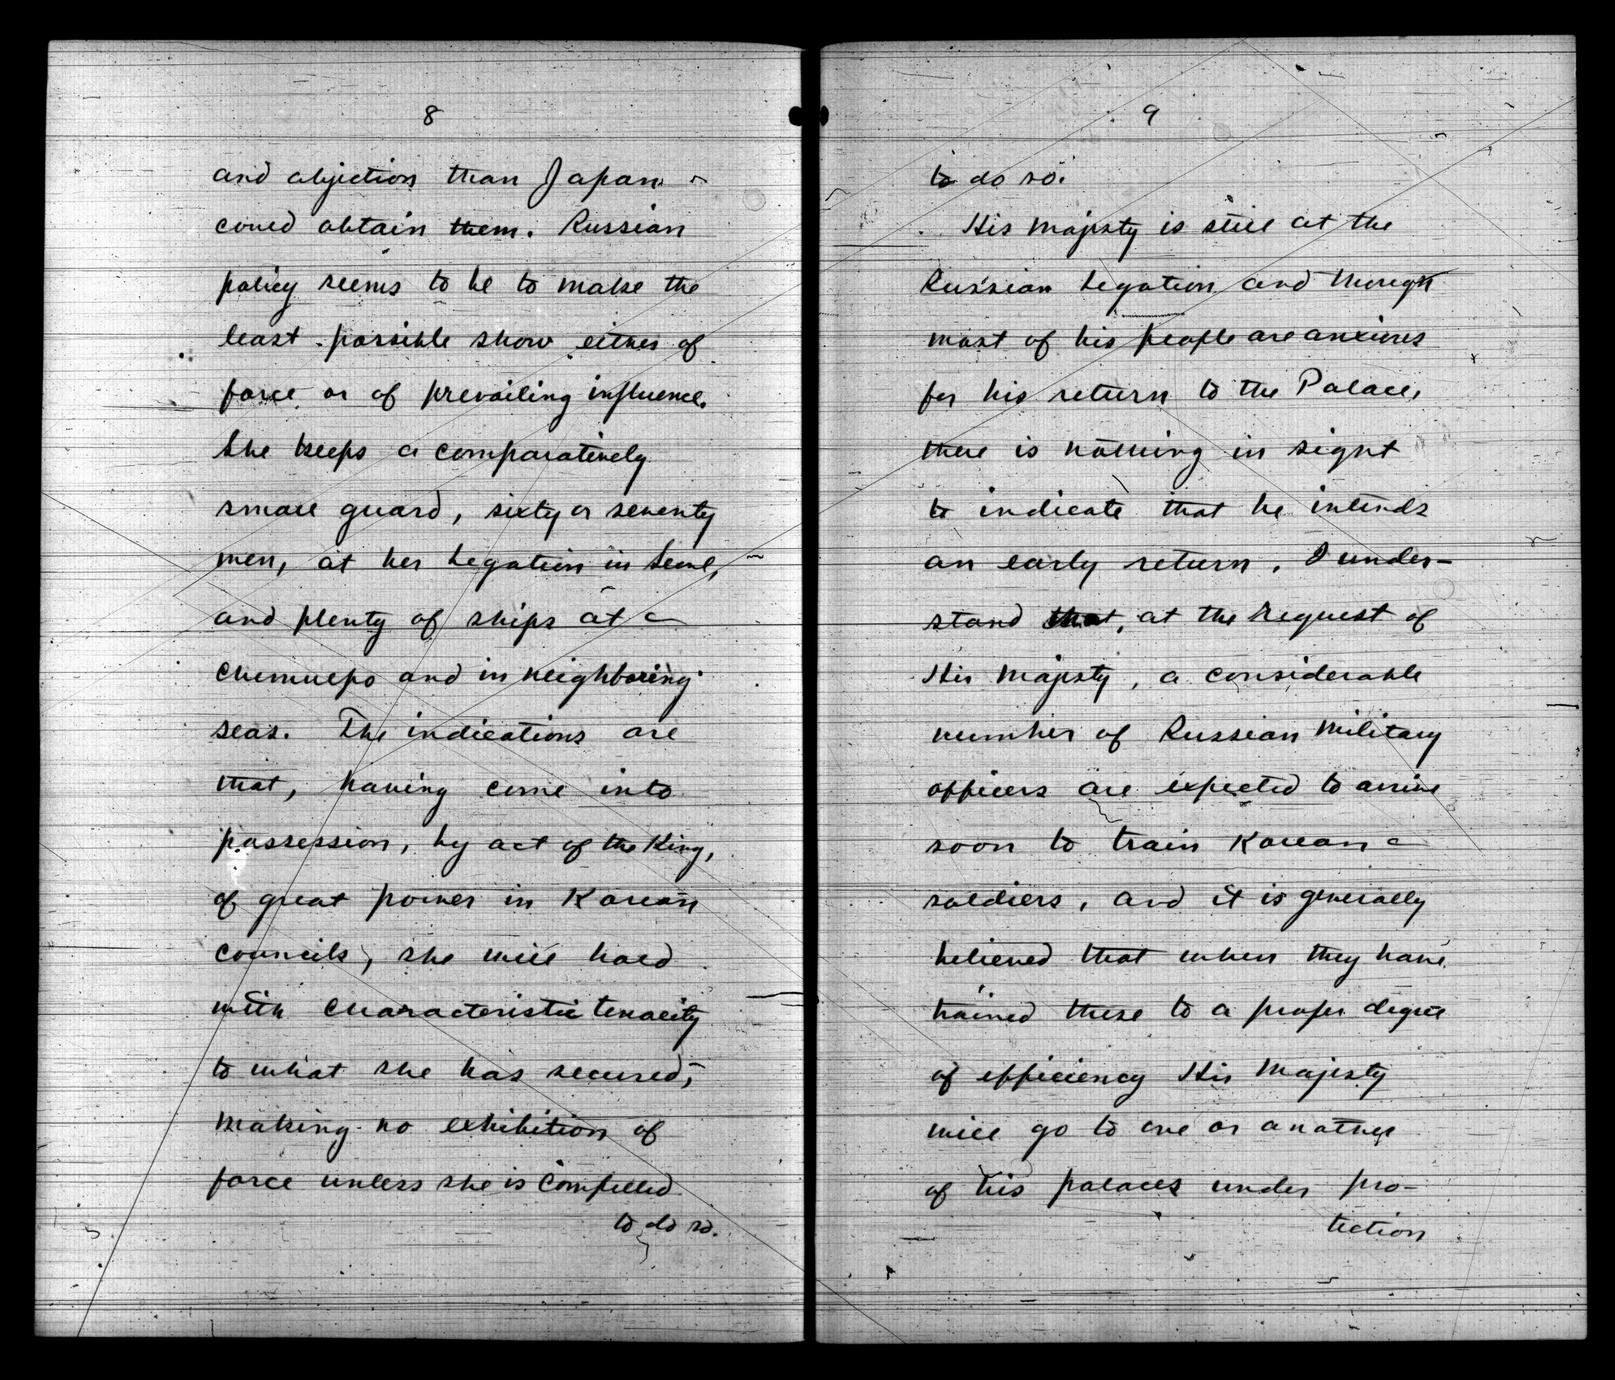 8
and objection than Japan
could obtain them. Russian
policy seems to be to make the
least possible show either of
force or of prevailing influence.
She keeps a comparatively
small guard, sixty or seventy
men, at her Legation in Seoul,
and plenty of ships at
Chemulpo and in neighboring
seas. The indications are
that, having come into
possession, by act of the King,
of great power in Korean
councils, she will hold
with characteristic tenacity
to what she has secured,
making no exhibition of
force unless she is compelled
to do so.
9
to do so.
His Majesty is still at the
Russian Legation and though
most of his people are anxious
for his return to the Palace,
there is nothing in sight
to indicate that he intends
an early return. I under-
stand that, at the request of
His Majesty, a considerable
number of Russian Military
officers are expected to arrive
soon to train Korean
soldiers, and it is generally
believed that when they have
trained these to a proper degree
of efficiency His Majesty
will go to one or another
of his palaces under pro-
tection